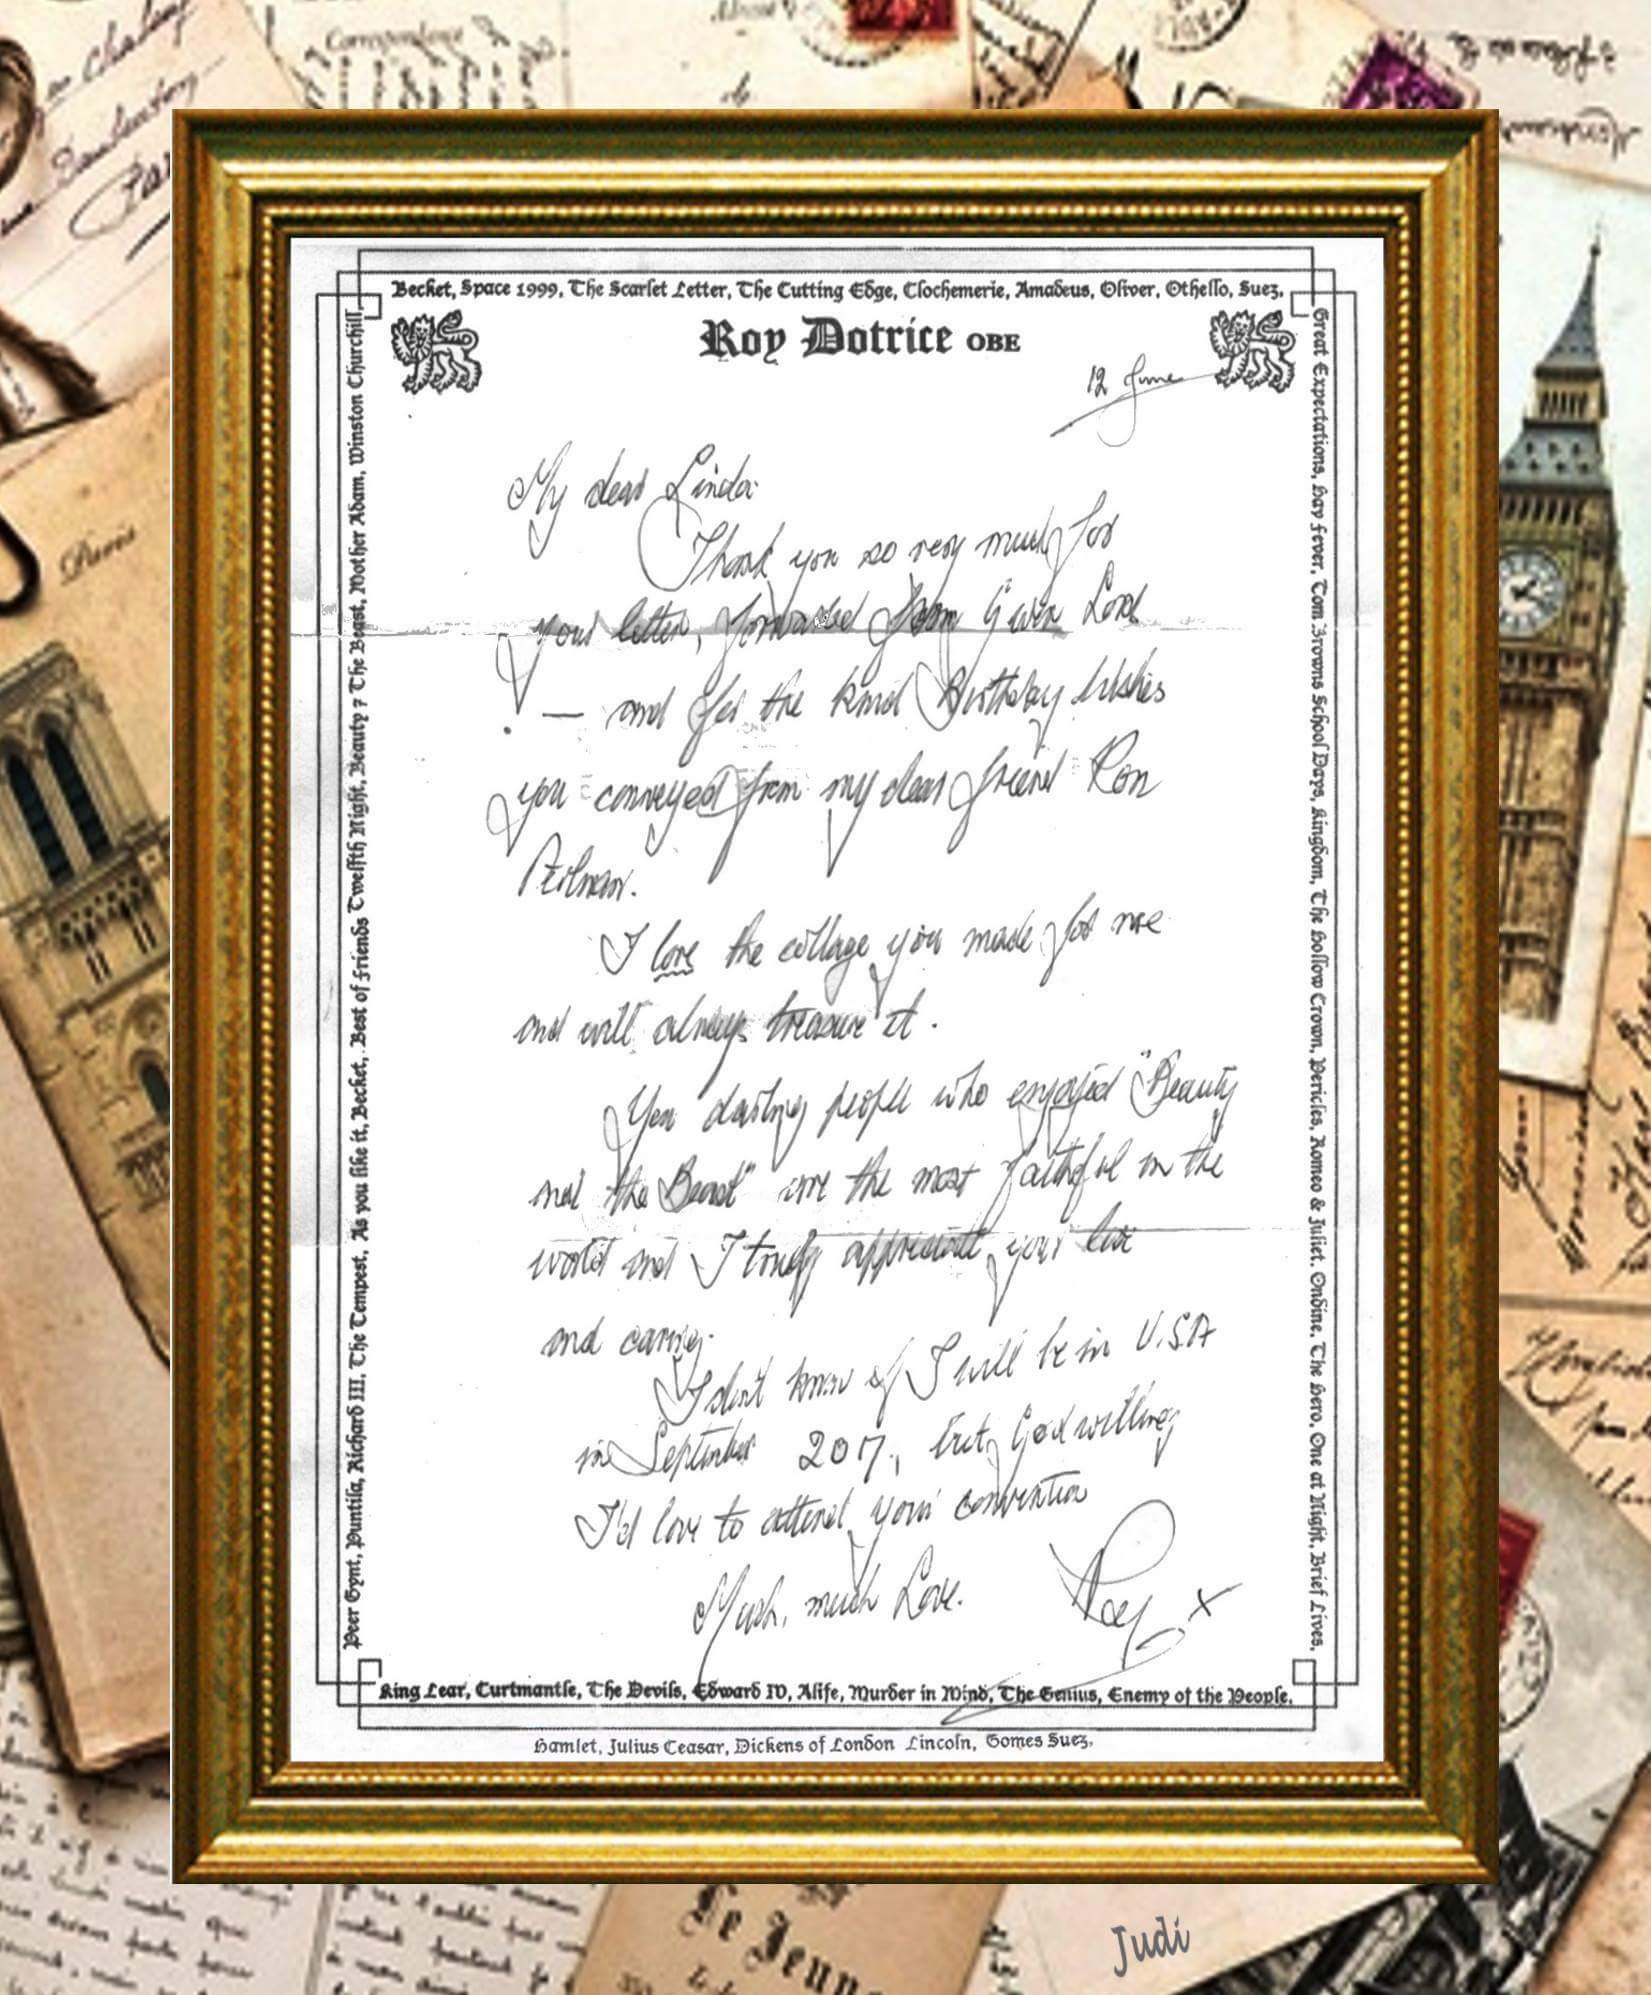 Becket, Space 1999, The Scarlet Letter, The Cutting Edge, Clochemerie, Amadeus, Oliver, Othello, Suez,
Roy Dotrice OBE
12 June
My dear Linda
Thank you so very much for
your letter, forwarded from Gwen Lord
— and for the kind Birthday Wishes
you conveyed from my dear friend Ron
Perlman.
I love the collage you made for me
and will always treasure it.
You darling people who enjoyed "Beauty
and the Beast" are the most faithful in the
world and I truly appreciate your love
and caring.
I don't know if I will be in U.S.A
in September 2017, but, God willing
I'd love to attend your convention
Much, much Love.
Roy x
King Lear, Curtmantle, The Devils, Edward IV, Alife, Murder in Mind, The Genius, Enemy of the People,
Hamlet, Julius Ceasar, Dickens of London Lincoln, Gomes Suez,
Peer Gynt, Puntila, Richard III, The Tempest, As you like it, Becket, Best of friends Twelfth Night, Beauty 7 The Beast, Mother Adam, Winston Churchill,
Great Expectations, Hay Fever, Tom Browns School Days, Kingdom, The Hollow Crown, Pericles, Romeo & Juliet, Ondine, The Hero, One at Night, Brief Lives,
Correspondence
Paris
Le Jeun
Judi